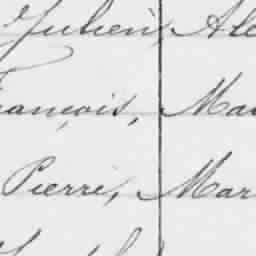 Julien, Ale
rançois, Mar
Pierre, Mar